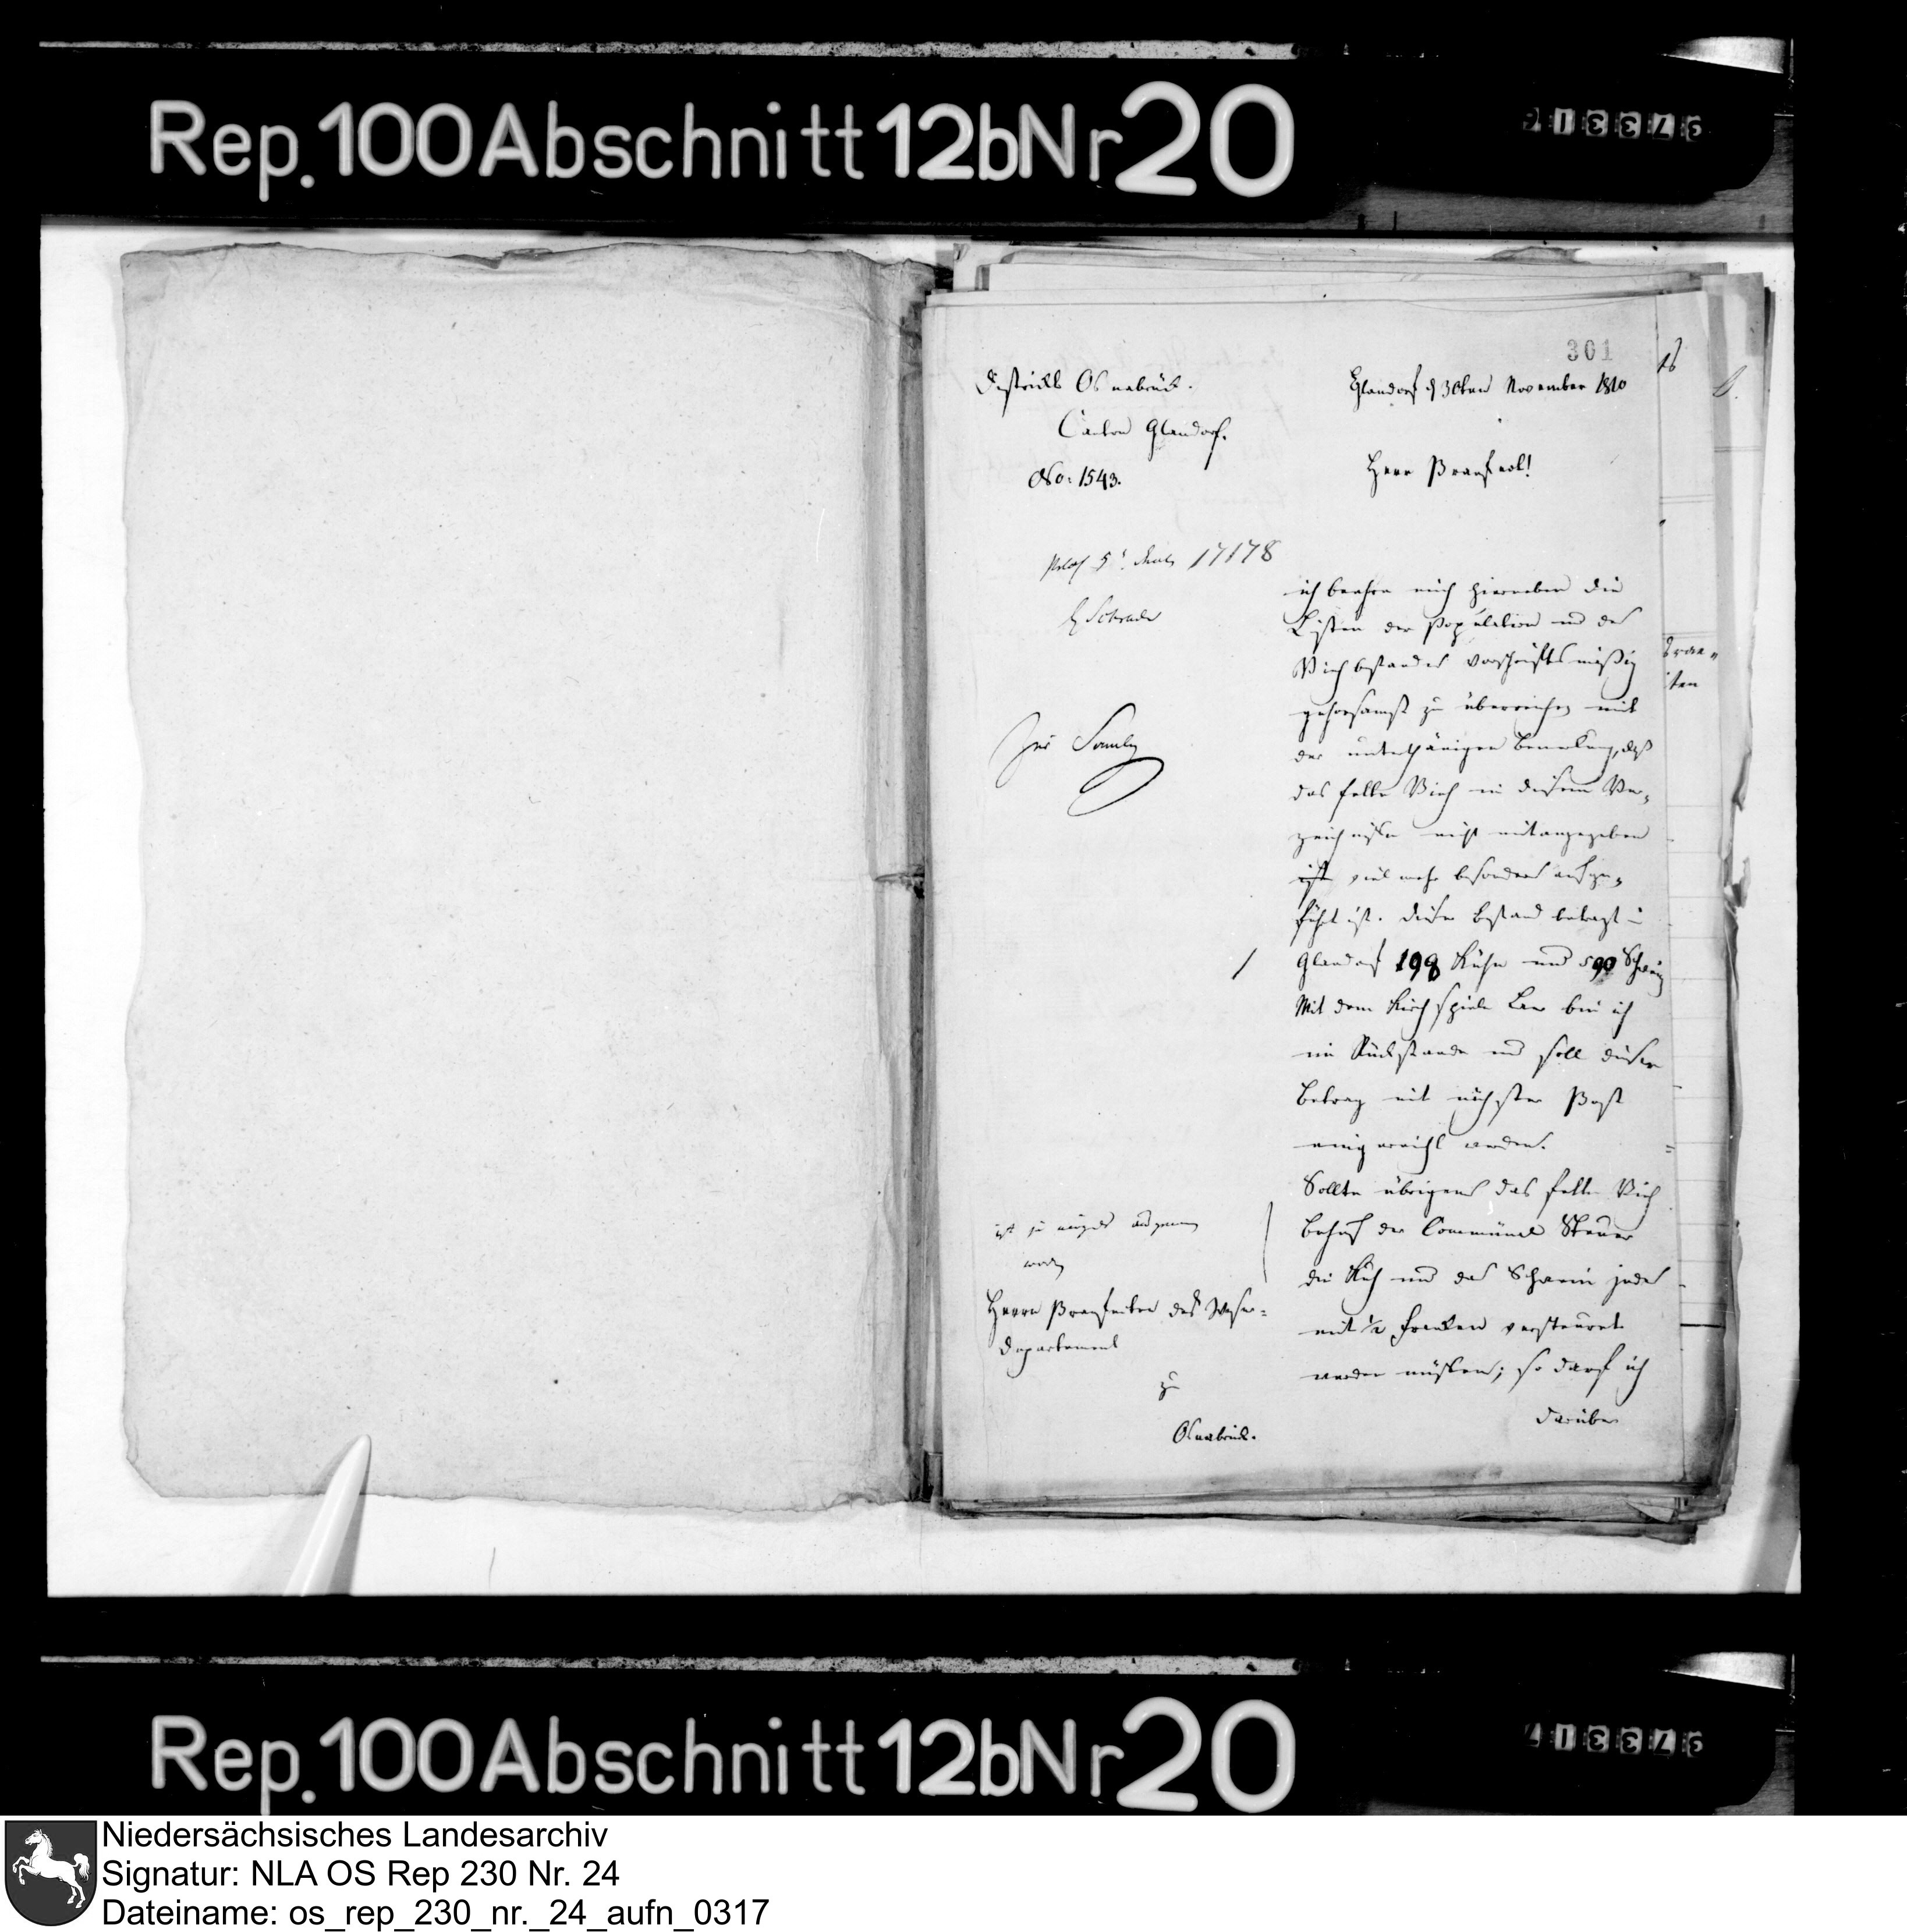 Rep. 100 Abschnitt 12b Nr 20
301
16
Districkt Osnabrück.
Canton Glandorf.
No: 1543.
Glandorf d 30ten November 1810
Herr Praefect!
17178
Schrade
ich beehre mich hierneben die
Listen der Population und des
Viehbestandes vorschriftsmäßig
gehorsamst zu überreichen mit
der unterthänigen Bemerkung, daß
das fette Vieh in diesem Ver„
zeichnisse nicht mitangegeben
ist vielmehr besonders aufge„
führt ist. Dieser Bestand betragt in
Glandorf 198 Kühe und 590 Schwein
Mit dem Kirchspiele Laer bin ich
im Rückstande und soll dieser
Betrag mit nächster Post
eingereicht werden.
Sollte übrigens das fette Vieh
behuf der Communal Steuer
die Kuh und das Schwein jedes
mit 1/2 Franken versteuret
werden müssen; so darf ich
darüber
ist zu
worden
Herrn Praefecten des Weser=
Departement
zu
Osnabrück.
Rep. 100 Abschnitt 12b Nr 20
Niedersächsisches Landesarchiv
Signatur: NLA OS Rep 230 Nr. 24
Dateiname: os_rep_230_nr._24_aufn_0317